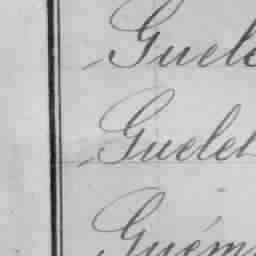 Guele
Guelet
Guém